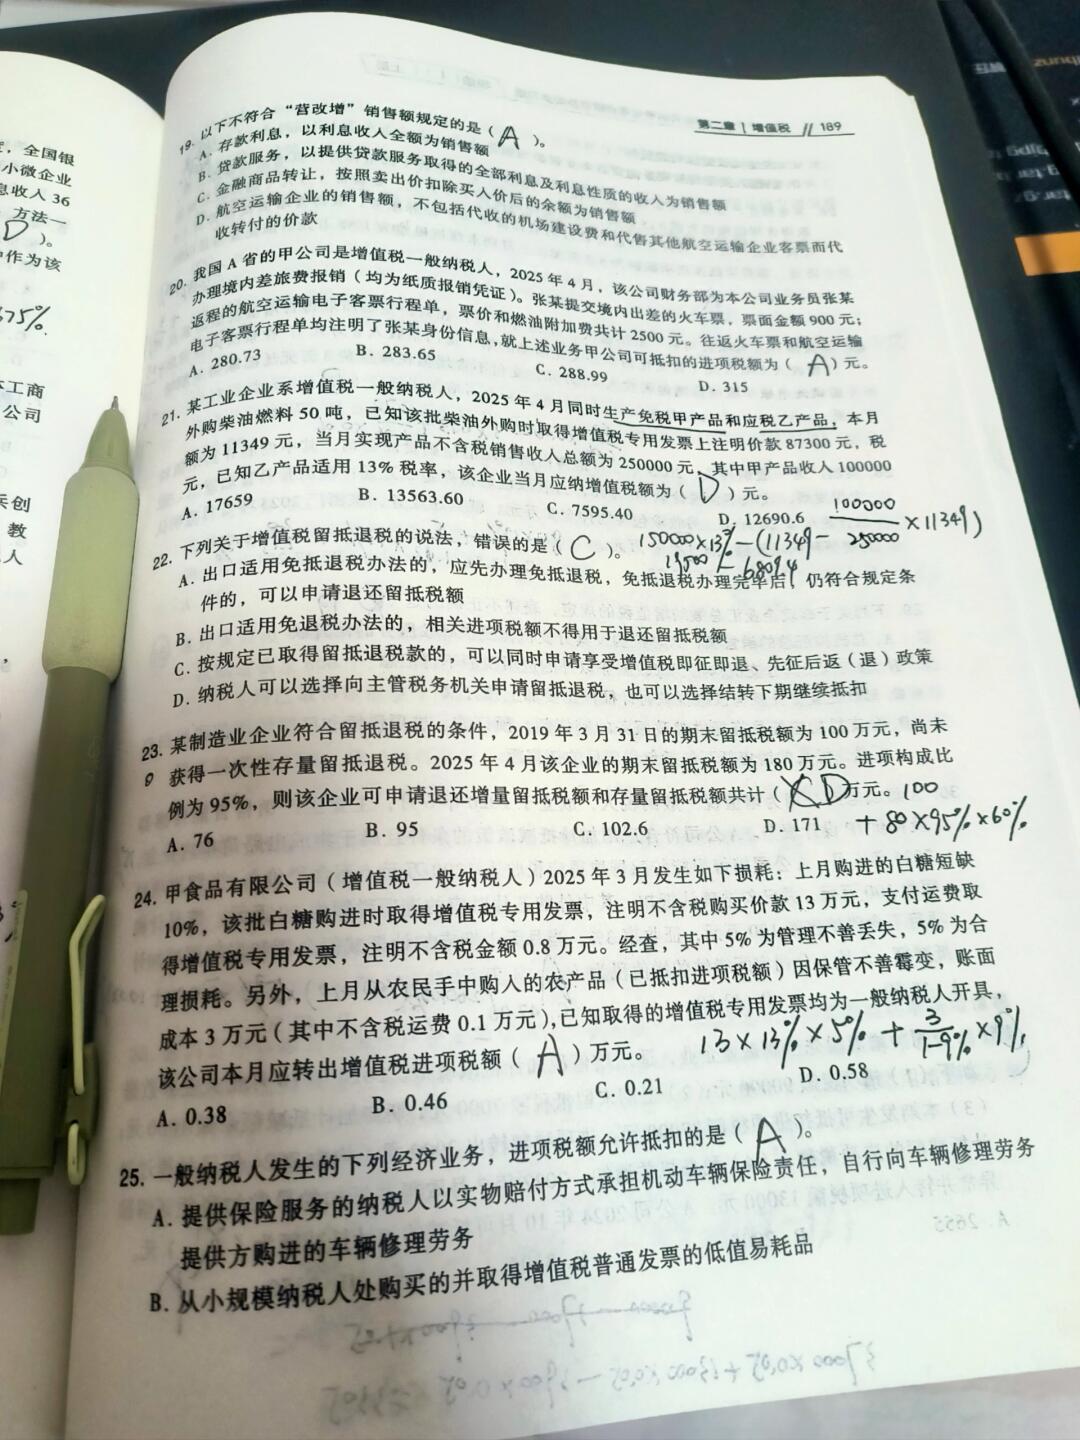 ，全国银
小微企业
息收入 36
方法一
D )。
作为该
375%.
工商
公司
兵创
教
人
第二章 | 增值税 // 189
19. 以下不符合“营改增”销售额规定的是( A )。
A. 存款利息，以利息收入全额为销售额
B. 贷款服务，以提供贷款服务取得的全部利息及利息性质的收入为销售额
C. 金融商品转让，按照卖出价扣除买入价后的余额为销售额
D. 航空运输企业的销售额，不包括代收的机场建设费和代售其他航空运输企业客票而代
收转付的价款
20. 我国 A 省的甲公司是增值税一般纳税人，2025 年 4 月，该公司财务部为本公司业务员张某
办理境内差旅费报销(均为纸质报销凭证)。张某提交境内出差的火车票，票面金额 900 元；
返程的航空运输电子客票行程单，票价和燃油附加费共计 2500 元。往返火车票和航空运输
电子客票行程单均注明了张某身份信息，就上述业务甲公司可抵扣的进项税额为( A )元。
A. 280.73 B. 283.65 C. 288.99 D. 315
21. 某工业企业系增值税一般纳税人，2025 年 4 月同时生产免税甲产品和应税乙产品，本月
外购柴油燃料 50 吨，已知该批柴油外购时取得增值税专用发票上注明价款 87300 元，税
额为 11349 元，当月实现产品不含税销售收入总额为 250000 元，其中甲产品收入 100000
元，已知乙产品适用 13% 税率，该企业当月应纳增值税额为( D )元。
A. 17659 B. 13563.60 C. 7595.40 D. 12690.6
150000×13%-(11349-100000/250000×11349)
19500-6809.4
22. 下列关于增值税留抵退税的说法，错误的是( C )。
A. 出口适用免抵退税办法的，应先办理免抵退税，免抵退税办理完毕后，仍符合规定条
件的，可以申请退还留抵税额
B. 出口适用免退税办法的，相关进项税额不得用于退还留抵税额
C. 按规定已取得留抵退税款的，可以同时申请享受增值税即征即退、先征后返(退)政策
D. 纳税人可以选择向主管税务机关申请留抵退税，也可以选择结转下期继续抵扣
23. 某制造业企业符合留抵退税的条件，2019 年 3 月 31 日的期末留抵税额为 100 万元，尚未
获得一次性存量留抵退税。2025 年 4 月该企业的期末留抵税额为 180 万元。进项构成比
例为 95%，则该企业可申请退还增量留抵税额和存量留抵税额共计( D )万元。100
A. 76 B. 95 C. 102.6 D. 171 +80×95%×60%
24. 甲食品有限公司(增值税一般纳税人)2025 年 3 月发生如下损耗：上月购进的白糖短缺
10%，该批白糖购进时取得增值税专用发票，注明不含税购买价款 13 万元，支付运费取
得增值税专用发票，注明不含税金额 0.8 万元。经查，其中 5% 为管理不善丢失，5% 为合
理损耗。另外，上月从农民手中购入的农产品(已抵扣进项税额)因保管不善霉变，账面
成本 3 万元(其中不含税运费 0.1 万元)，已知取得的增值税专用发票均为一般纳税人开具，
该公司本月应转出增值税进项税额( A )万元。 13×13%×5%+3/1-9%×9%
A. 0.38 B. 0.46 C. 0.21 D. 0.58
25. 一般纳税人发生的下列经济业务，进项税额允许抵扣的是( A )。
A. 提供保险服务的纳税人以实物赔付方式承担机动车辆保险责任，自行向车辆修理劳务
提供方购进的车辆修理劳务
B. 从小规模纳税人处购买的并取得增值税普通发票的低值易耗品